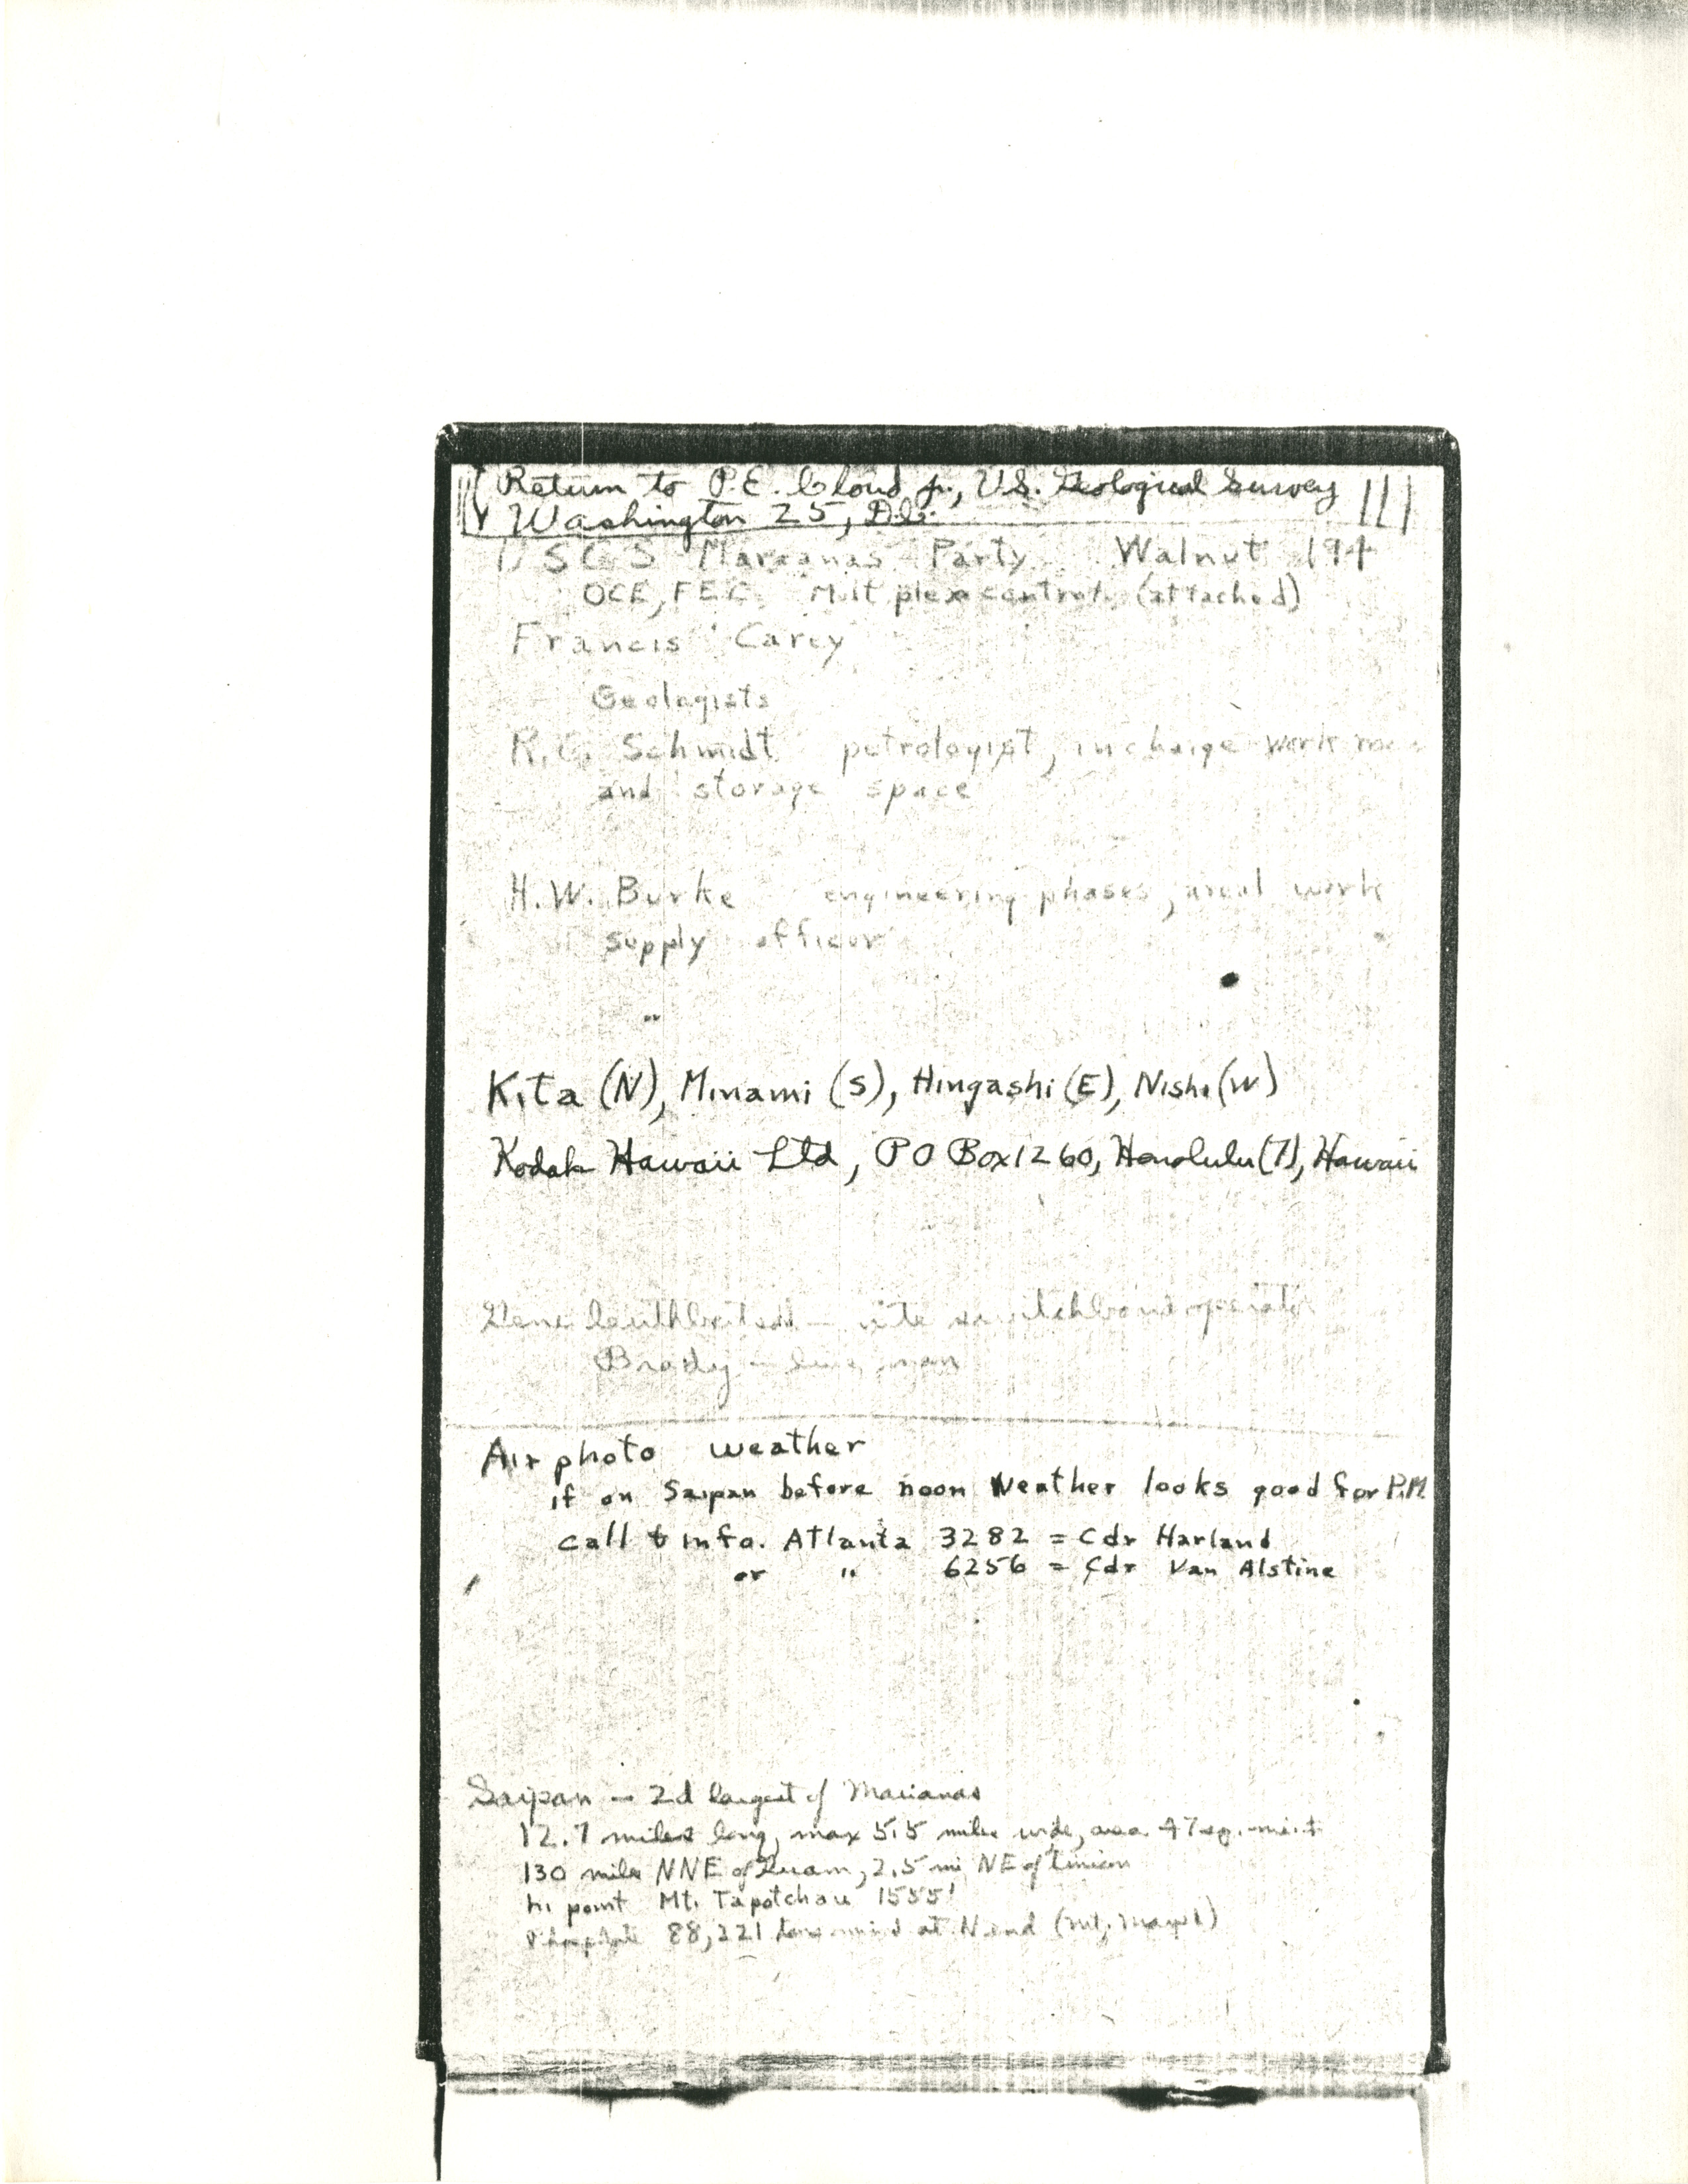 Return to P.E. Cloud Jr., U.S. Geological Survey
Washington 25, D.C.
USGS Marianas Party Walnut 194
OCE, FEC Multiplex control (attached)
Francis Carey
Geologists
R.G. Schmidt petrologist, in charge work
and storage space
H.W. Burke engineering phases, areal work
supply officer
Kita (N), Minami (S), Hingashi (E), Nishi (W)
Kodak Hawaii Ltd, PO Box 1260, Honolulu (7), Hawaii
Gene switchboard operator
Brady - line man
Air photo weather
if on Saipan before noon weather looks good for P.M.
call & info. Atlanta 3282 = Cdr Harland
or " 6256 = Cdr Van Alstine
Saipan - 2d largest of Marianas
12.7 miles long, max 5.5 miles wide, area 47 sq. mi. ±
130 miles NNE of Guam, 2.5 mi NE of Tinian
hi point Mt. Tapotchau 1555'
Phosphate 88,221 tons mined at N end (Mt.